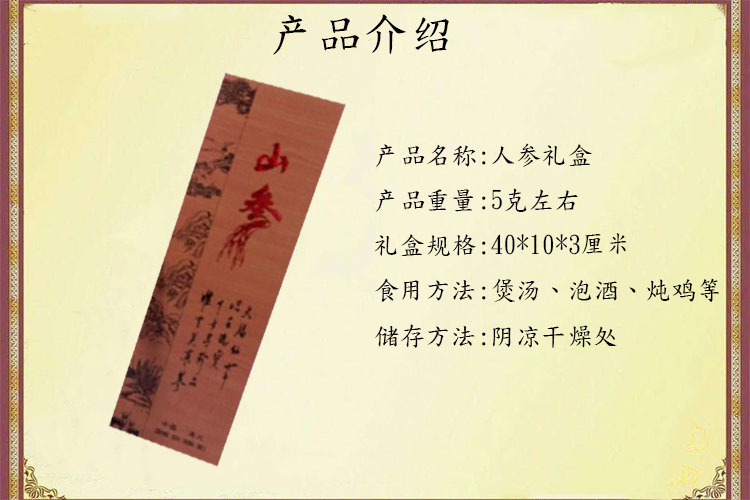 产品介绍
山参
产品名称:人参礼盒
产品重量:5克左右
礼盒规格:40*10*3厘米
食用方法:煲汤、泡酒、炖鸡等
储存方法:阴凉干燥处